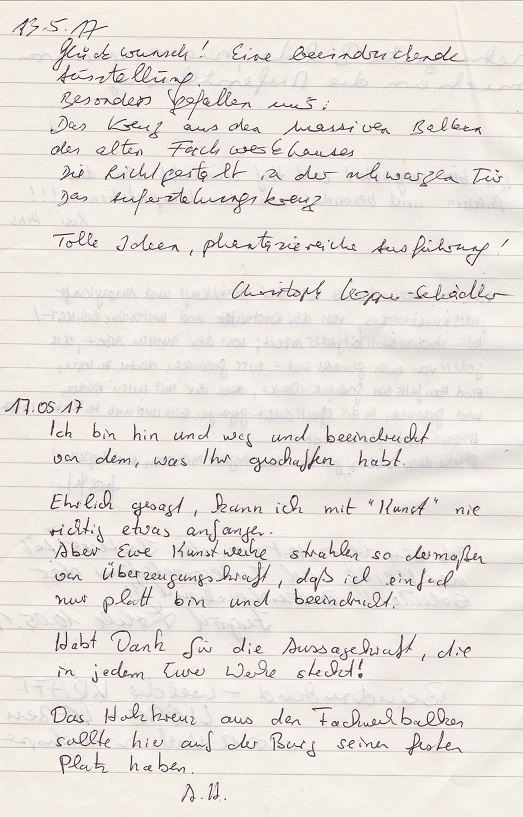 13.5.17
Glückwunsch! Eine beeindruckende
Ausstellung.
Besonders gefallen uns:
Das Kreuz aus den massiven Balken
des alten Fachwerkhauses
Die Lichtgestalt in der schwarzen Tür
Das Auferstehungskreuz
Tolle Ideen, phantasiereiche Ausführung!
Christoph
17.05.17
Ich bin hin und weg und beeindruckt
von dem, was Ihr geschaffen habt.
Ehrlich gesagt, kann ich mit "Kunst" nie
richtig etwas anfangen.
Aber Eure Kunstwerke strahlen so dermaßen
von Überzeugungskraft, daß ich einfach
nur platt bin und beeindruckt.
Habt Dank für die Aussagekraft, die
in jedem Eurer Werke steckt!
Das Holzkreuz aus den Fachwerkbalken
sollte hier auf der Burg seinen festen
Platz haben.
A.H.